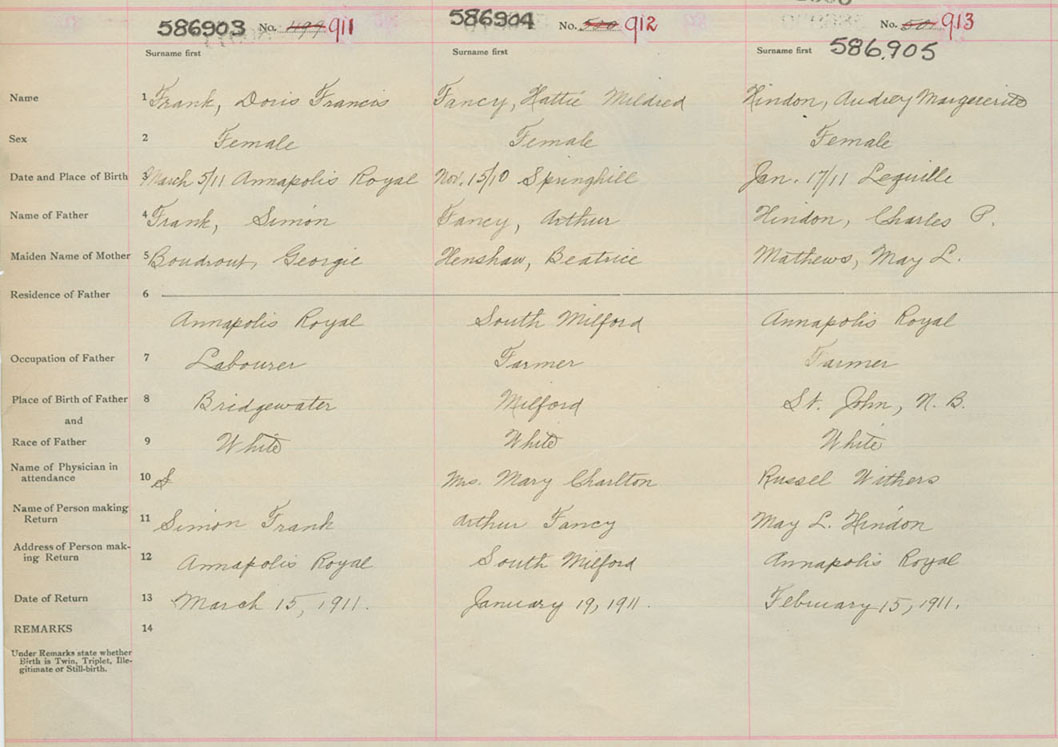 586903 No. 499 911 586904 No. 500 912 No. 501 913
586,905
Surname first Surname first Surname first
Name 1 Frank, Doris Francis Fancy, Hattie Mildred Hindon, Audrey Marguerite
Sex 2 Female Female Female
Date and Place of Birth 3 March 5/11 Annapolis Royal Nov. 15/10 Springhill Jan. 17/11 Lequille
Name of Father 4 Frank, Simon Fancy, Arthur Hindon, Charles P.
Maiden Name of Mother 5 Boudrout, Georgie Henshaw, Beatrice Mathews, May L.
Residence of Father 6
Annapolis Royal South Milford Annapolis Royal
Occupation of Father 7 Labourer Farmer Farmer
Place of Birth of Father 8 Bridgewater Milford St. John, N. B.
and
Race of Father 9 White White White
Name of Physician in
attendance 10 S Mrs. Mary Charlton Russel Withers
Name of Person making
Return 11 Simon Frank Arthur Fancy May L. Hindon
Address of Person mak-
ing Return 12 Annapolis Royal South Milford Annapolis Royal
Date of Return 13 March 15, 1911. January 19, 1911. February 15, 1911.
REMARKS 14
Under Remarks state whether
Birth is Twin, Triplet, Ille-
gitimate or Still-birth.